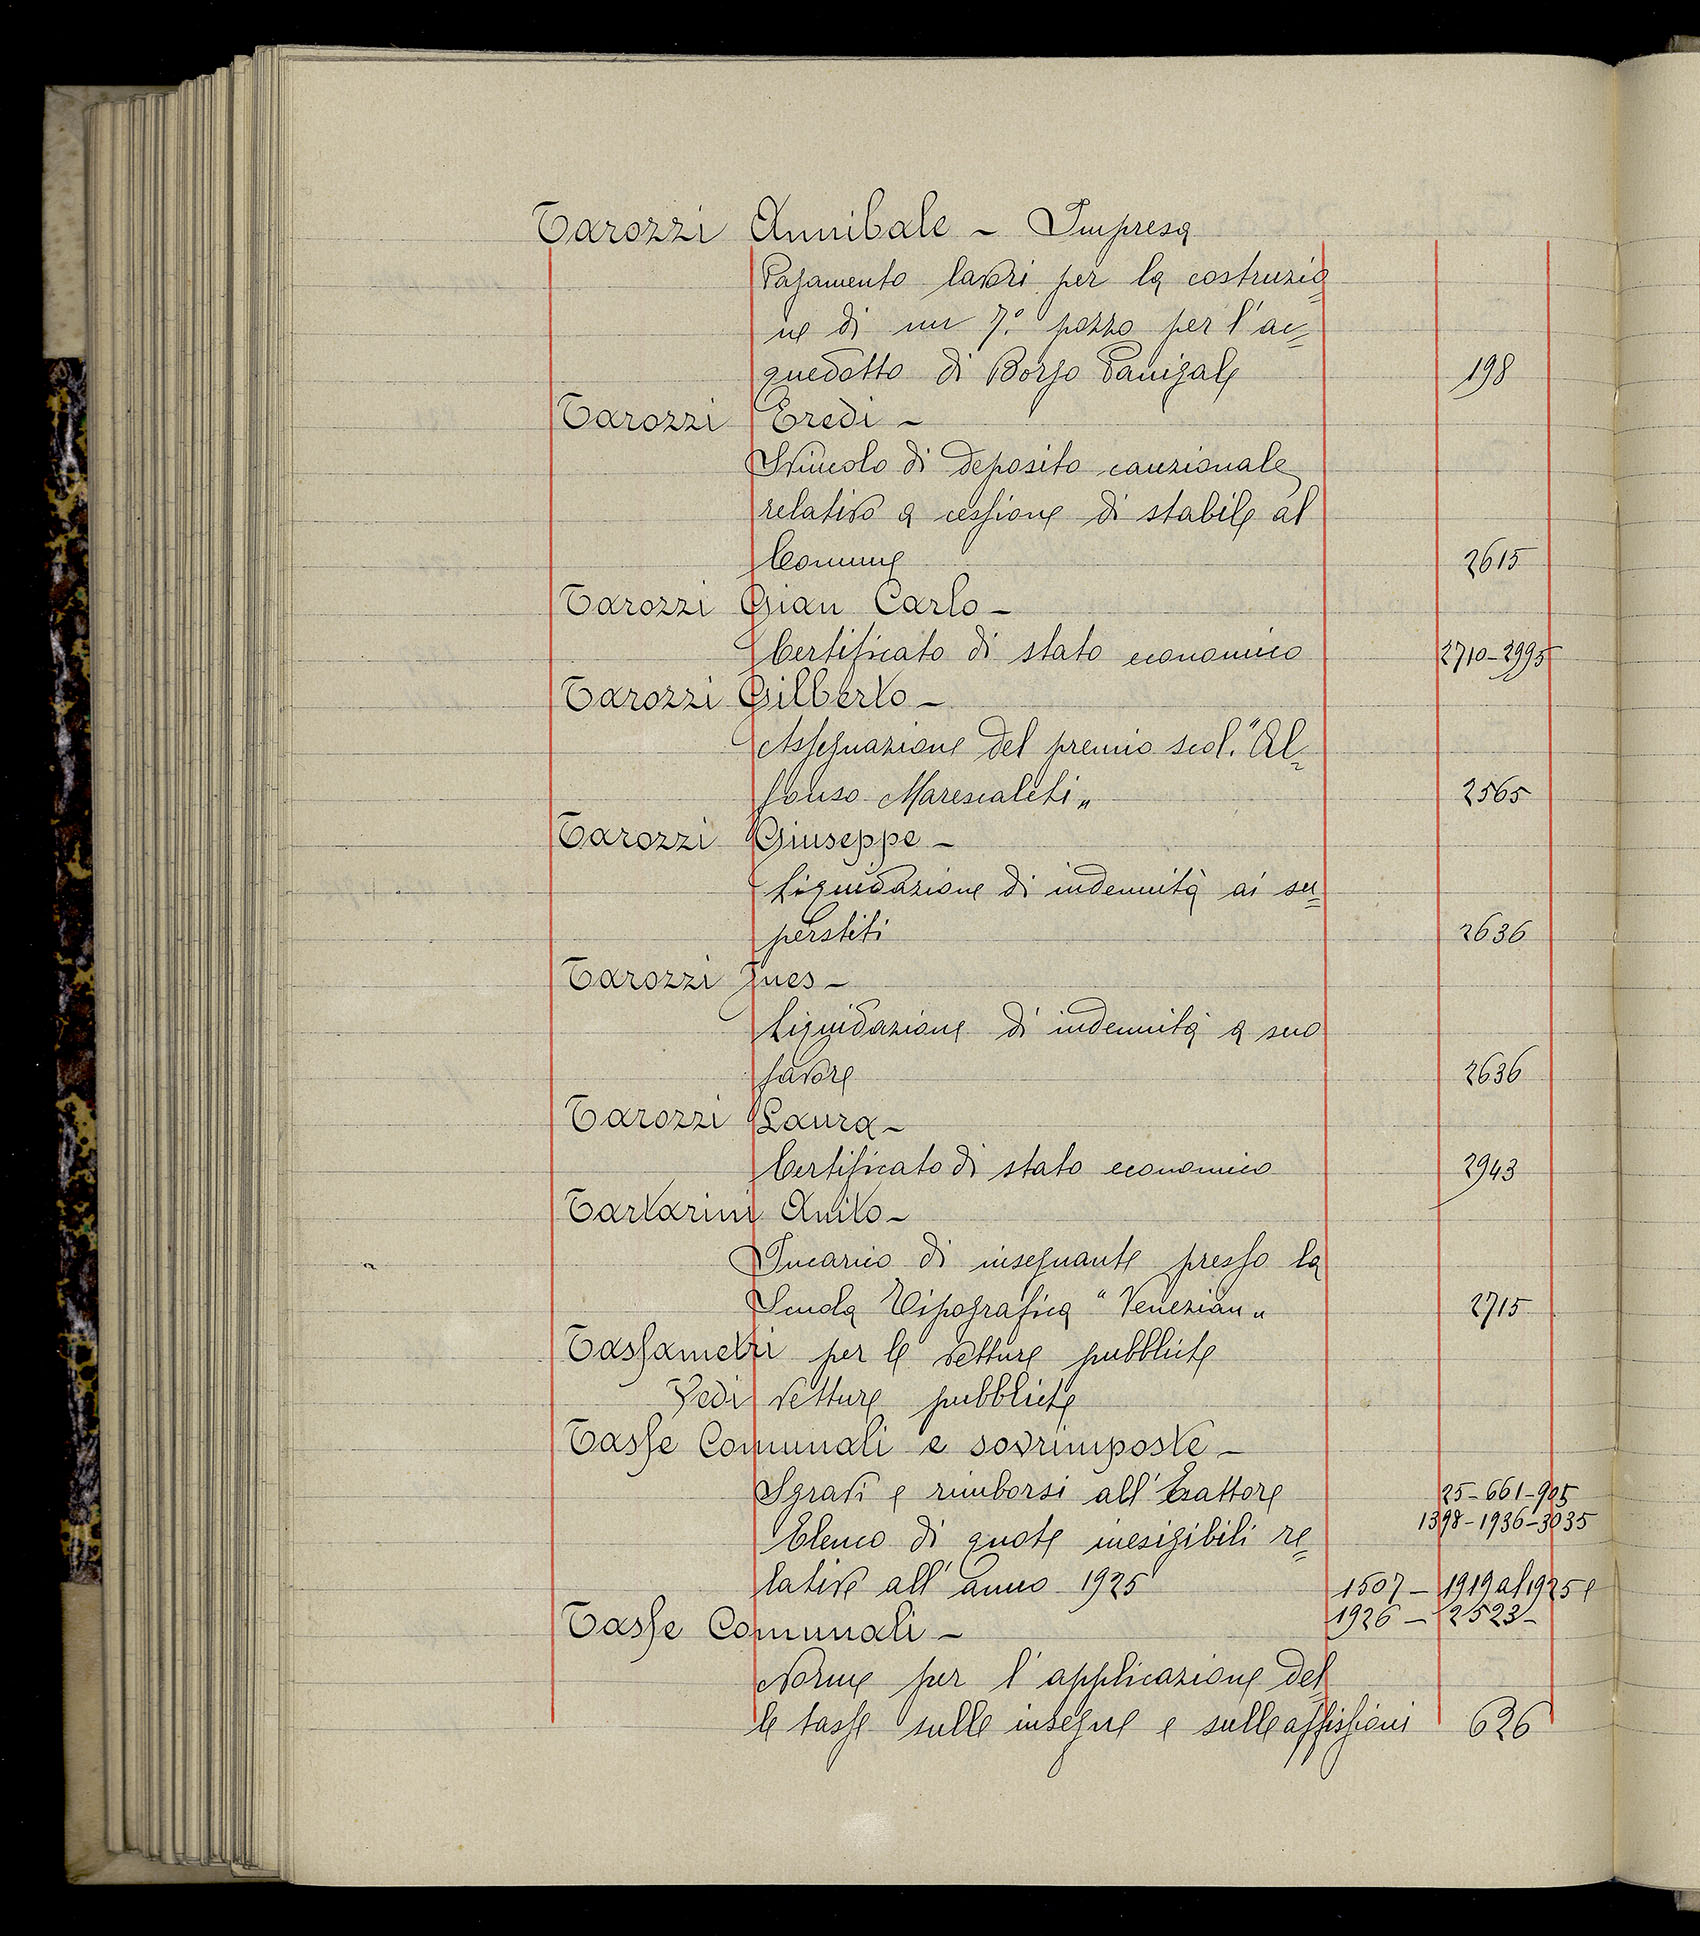 Tarozzi Annibale - Impresa
Pagamento lavori per la costruzio=
ne di un 7.° pozzo per l'ac=
quedotto di Borgo Panigale 198
Tarozzi Eredi -
Svincolo di deposito cauzionale
relativo a cessione di stabile al
Comune 2615
Tarozzi Gian Carlo -
Certificato di stato economico 2710-2995
Tarozzi Gilberto -
Assegnazione del premio scol. "Al=
fonso Marescalchi„ 2565
Tarozzi Giuseppe -
Liquidazione di indennità ai su=
perstiti 2636
Tarozzi Ines -
Liquidazione di indennità a suo
favore 2636
Tarozzi Laura -
Certificato di stato economico 2943
Tartarini Anito -
Incarico di insegnante presso la
Scuola Tipografica "Venezian„ 2715
Tassametri per le vetture pubbliche
Vedi vetture pubbliche
Tasse Comunali e sovrimposte -
Sgravi e rimborsi all'Esattore 25-661-905
1398-1936-3035
Elenco di quote inesigibili re=
lative all'anno 1925 1507 - 1919 al 1925 e
1926 - 2523 -
Tasse Comunali -
Norme per l'applicazione del
le tasse sulle insegne e sulle affissioni 626